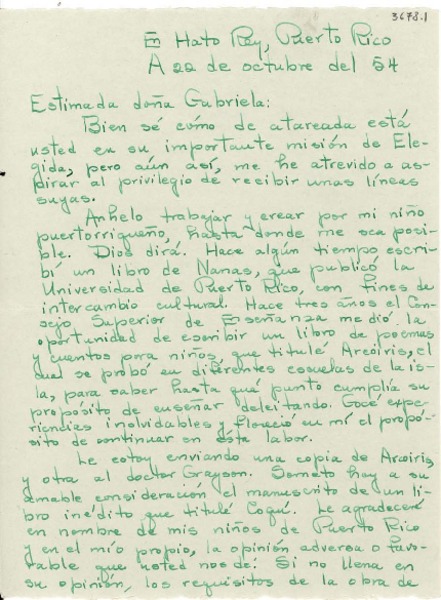 3678.1
En Hato Rey, Puerto Rico
A 22 de octubre del 54
Estimada doña Gabriela:
Bien sé cómo de atareada está
usted en su importante misión de Ele-
gida, pero aún así, me he atrevido a as-
pirar al privilegio de recibir unas líneas
suyas.
Anhelo trabajar y crear por mi niño
puertorriqueño, hasta donde me sea posi-
ble. Dios dirá. Hace algún tiempo escri-
bí un libro de Nanas, que publicó la
Universidad de Puerto Rico, con fines de
intercambio cultural. Hace tres años el Con-
sejo Superior de Enseñanza me dió la
oportunidad de escribir un libro de poemas
y cuentos para niños, que titulé Arcoiris, el
cual se probó en diferentes escuelas de la is-
la, para saber hasta qué punto cumplía su
propósito de enseñar deleitando. Gocé expe-
riencias inolvidables y floreció en mí el propó-
sito de continuar en esta labor.
Le estoy enviando una copia de Arcoiris
y otra al doctor Grayson. Someto hoy a su
amable consideración el manuscrito de un li-
bro inédito que titulé Coquí. Le agradeceré
en nombre de mis niños de Puerto Rico
y en el mío propio, la opinión adversa o favo-
rable que usted nos dé. Si no llena en
su opinión, los requisitos de la obra de